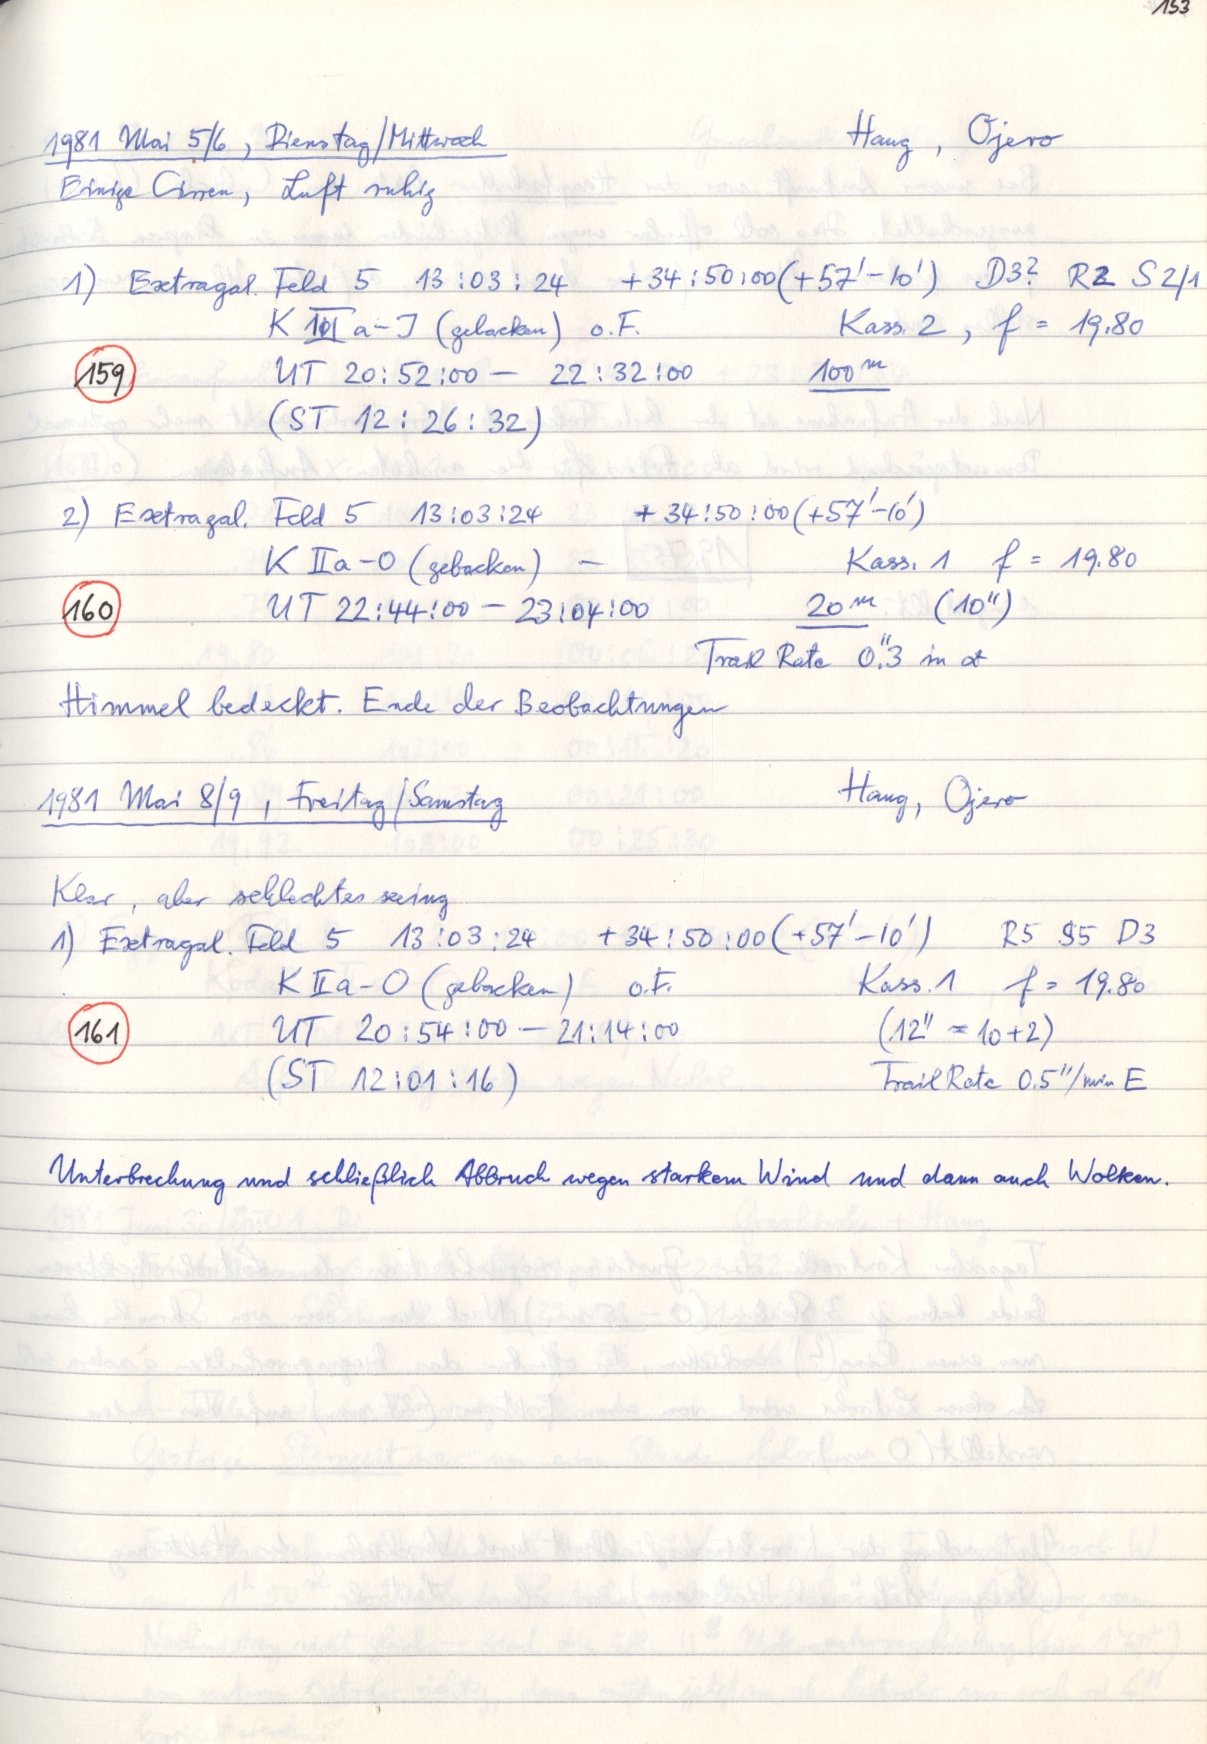 153
1981 Mai 5/6, Dienstag/Mittwoch Haug, Ojero
Einige Cirren, Luft ruhig
1) Extragal. Feld 5 13:03:24 +34:50:00 (+57'-10') D3? R2 S2/1
K IIIa-J (gebacken) o.F. Kass. 2, f = 19.80
159 UT 20:52:00 - 22:32:00 100m
(ST 12:26:32)
2) Extragal. Feld 5 13:03:24 +34:50:00 (+57'-10')
K IIa-O (gebacken) - Kass. 1 f = 19.80
160 UT 22:44:00 - 23:04:00 20m (10")
Trail Rate 0."3 in α
Himmel bedeckt. Ende der Beobachtungen
1981 Mai 8/9, Freitag/Samstag Haug, Ojero
Klar, aber schlechtes seeing
1) Extragal. Feld 5 13:03:24 +34:50:00 (+57'-10') R5 S5 D3
K IIa-O (gebacken) o.F. Kass. 1 f = 19.80
161 UT 20:54:00 - 21:14:00 (12" = 10+2)
(ST 12:01:16) Trail Rate 0.5"/min E
Unterbrechung und schließlich Abbruch wegen starkem Wind und dann auch Wolken.